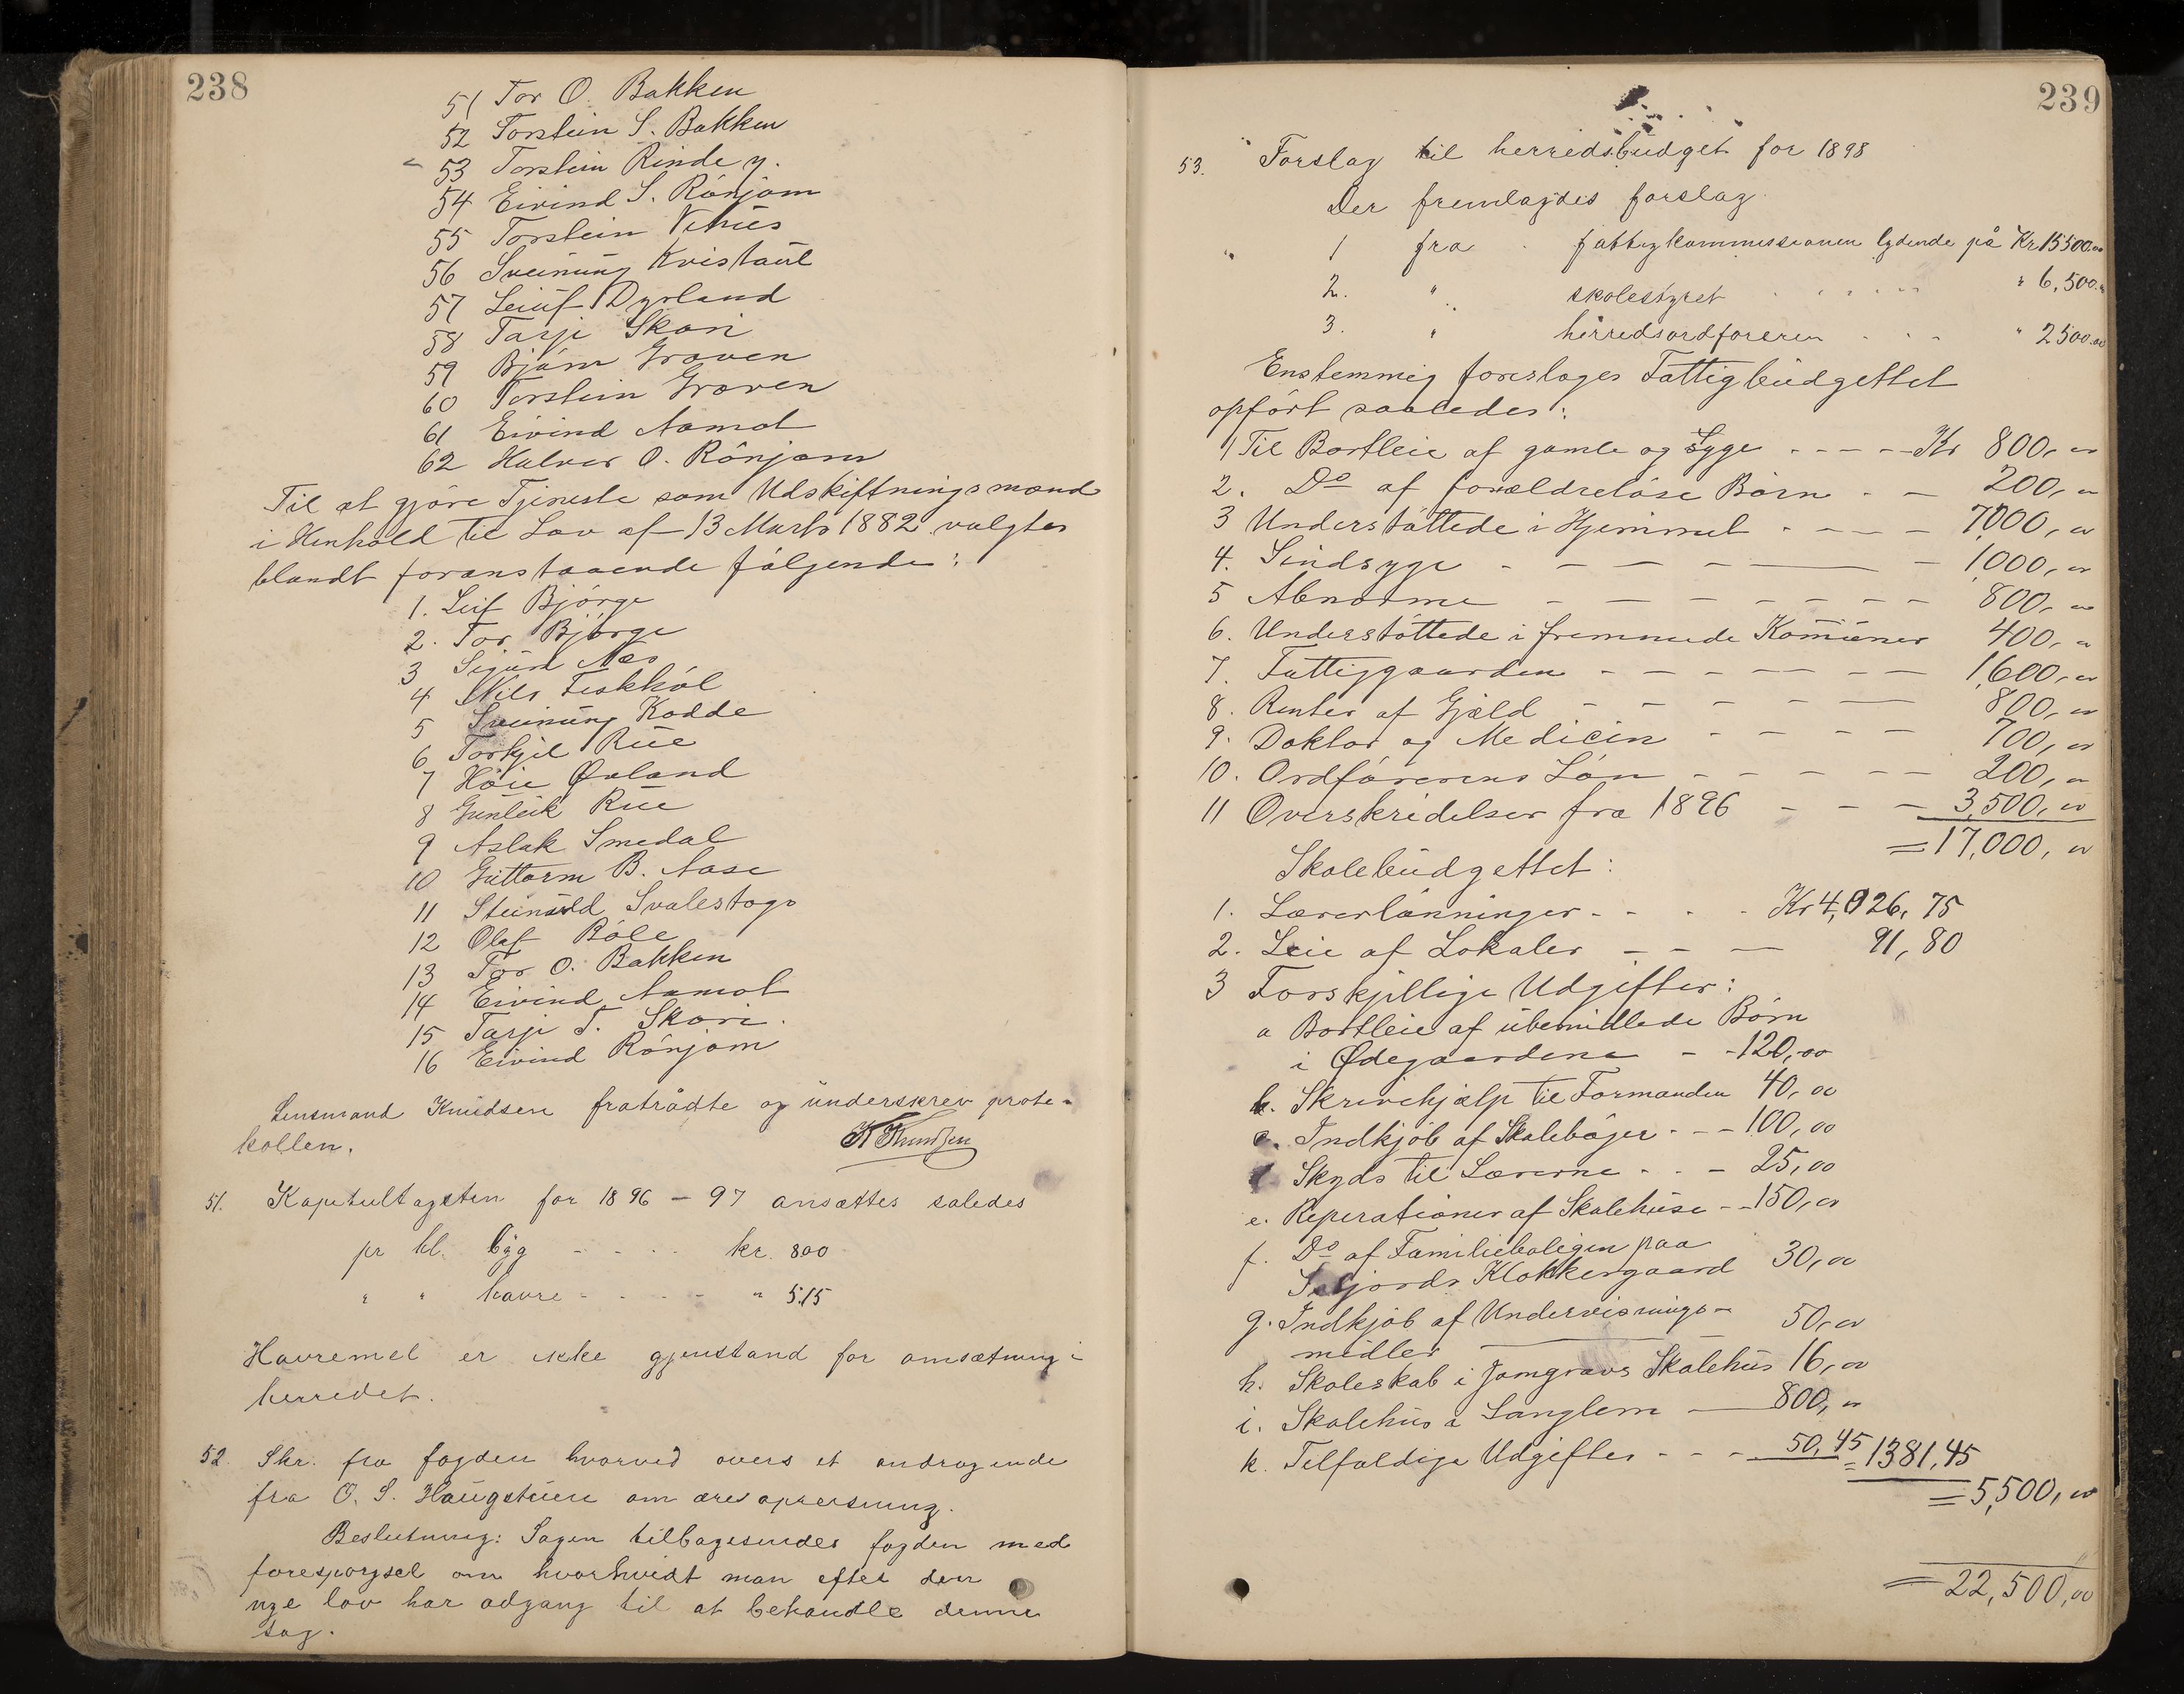 238
51 Tor O. Bakken
52 Torstein S. Bakken
53 Torstein Rinde y.
54 Eivind S. Rönjom
55 Torstein Vehus
56 Sveinung Kvistaul
57 Leiuf Dyrland
58 Tarje Skori
59 Bjørn Graven
60 Torstein Graven
61 Eivind Aamot
62 Halvor O. Rönjom
Til at gjöre Tjeneste som Udskiftningsmænd
i Henhold til Lov af 13 Marts 1882 valgtes
blandt foranstaaende fölgende:
1. Leif Björge
2. Tor Björge
3 Sigurd Næs
4 Nils Fiskhól
5 Sveinung Kodde
6 Torkjel Rue
7 Höie Øvland
8 Gunleik Rue
9 Aslak Smedal
10 Guttorm B. Aase
11 Steinuld Svalestogo
12 Olaf Böle
13 Tor O. Bakken
14 Eivind Aamot
15 Tarje T. Skori.
16 Eivind Rönjom
Lensmand Knudsen fratrådte og underskrev proto-
kollen.
K Knudsen
51. Kapiteltagsten for 1896 - 97 ansættes saledes
pr hl. byg - - - - kr. 800
" " havre - - - - " 515
Havremel er ikke gjenstand for omsætning i
herredet.
52. Skr. fra fogden hvorved overs et andragende
fra O. S. Haugstuen om æresopreisning.
Beslutning: Sagen tilbagesendes fogden med
forespørgsel om hvorhvidt man efter den
nye lov har adgang til at behandle denne
sag.
239
53. Forslag til herredsbudget for 1898
Der fremlagdes forslag
1 fra fattigkommissionen lydende på Kr 15500.00
2. " skolestyret " 6,500.
3. " herredsordføreren " 2500.00
Enstemmig foreslages Fattigbudgettet
opfört saaledes:
1 Til Bortleie af gamle og Syge - - - - Kr 800,00
2. Do af forældrelöse Börn - - 200,00
3 Understöttede i Hjemmet - - - - 7000,00
4. Sindsyge - - - - 1000,00
5 Abnorme - - - - - - - 800,00
6. Understöttede i fremmede Komuner 400,00
7. Fattiggaarden - - - - - - 1600,00
8. Renter af Gjæld - - - - - 800,00
9. Doktor og Medicin - - - - 700,00
10. Ordförerens Lön - - - - - 200,00
11 Overskridelser fra 1896 - - - 3,500,00
= 17,000,00
Skolebudgettet:
1. Lærerlönninger - - - - Kr 4,026,75
2. Leie af Lokaler - - - 91,80
3 Forskjellige Udgifter:
a Bortleie af ubemidlede Börn
i Ødegaardene - - 120,00
b. Skrivehjælp til Formanden 40,00
c. Indkjöb af Skoleböger - - - 100,00
d Skyds til Lærerne - - - 25,00
e. Reperationer af Skolehuse - - 150,00
f. Do af Familieboligen paa
Seljords Klokkergaard 30,00
g. Indkjöb af Undervisnings-
midler 50,00
h. Skoleskab i Jomgravs Skolehus 16,00
i. Skolehus i Langlem 800,00
k. Tilfældige Udgifter - - - 50,45 = 1381,45
= 5,500,00
= 22,500,00